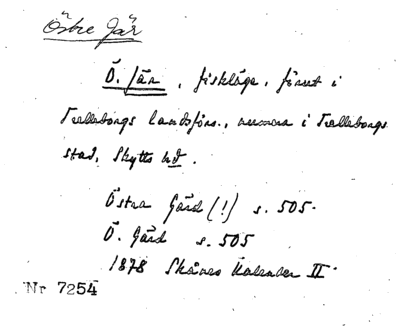 Östre Jär
Ö. Jär, fiskläge, förut i
Trelleborgs landsförs., numera i Trelleborgs
stad, Skytts hd.
Östra Gärd (!) s. 505.
Ö. Gärd s. 505
1878 Skånes Kalender II.
Nr 7254